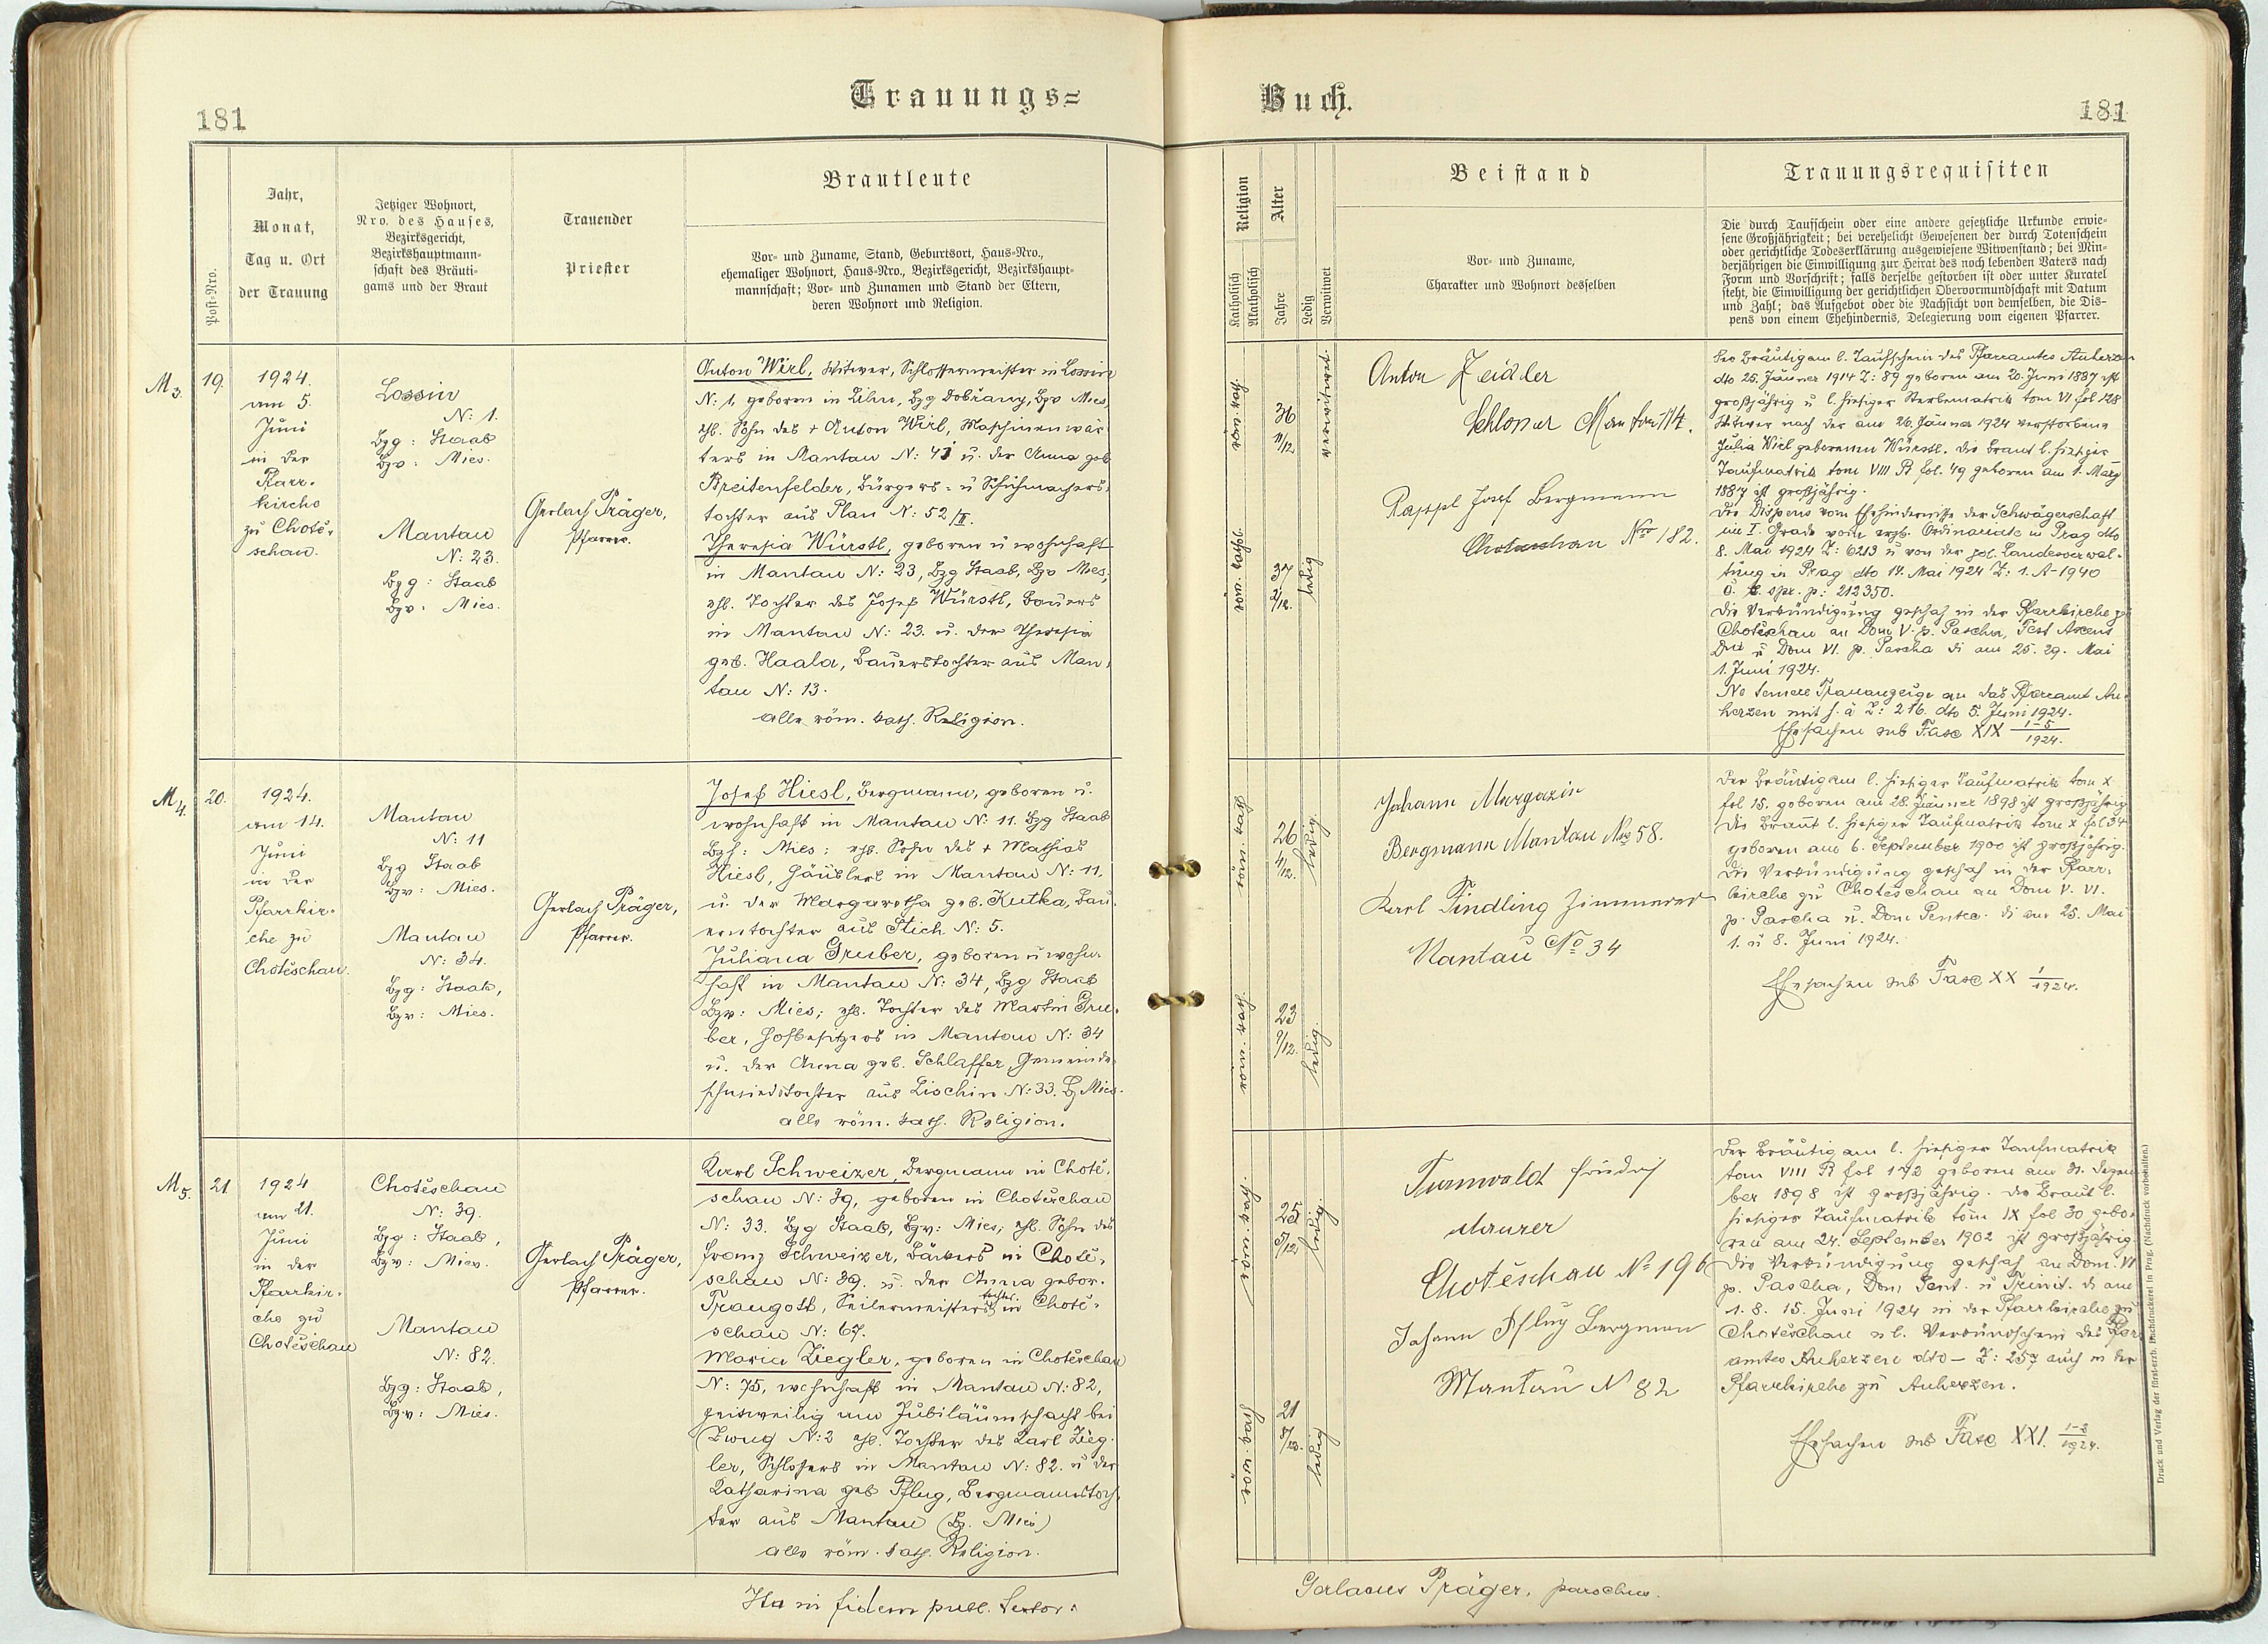 Trauungs=
Buch.
181
181
Post=Nro.
Jahr,
Monat,
Tag u. Ort
der Trauung
Jetziger Wohnort,
Nro. des Hauses,
Bezirksgericht,
Bezirkshauptmann=
schaft des Bräuti=
gams und der Braut
Trauender
Priester
Brautleute
Vor= und Zuname, Stand, Geburtsort, Haus=Nro.,
ehemaliger Wohnort, Haus=Nro., Bezirksgericht, Bezirkshaupt=
mannschaft; Vor= und Zunamen und Stand der Eltern,
deren Wohnort und Religion.
Religion
Katholisch
Akatholisch
Alter
Jahre
Ledig
Verwitwet
Beistand
Vor= und Zuname,
Charakter und Wohnort desselben
Trauungsrequisiten
Die durch Taufschein oder eine andere gesetzliche Urkunde erwie=
sene Großjährigkeit; bei verehelicht Gewesenen der durch Totenschein
oder gerichtliche Todeserklärung ausgewiesene Witwenstand; bei Min=
derjährigen die Einwilligung zur Heirat des noch lebenden Vaters nach
Form und Vorschrift; falls derselbe gestorben ist oder unter Kuratel
steht, die Einwilligung der gerichtlichen Obervormundschaft mit Datum
und Zahl; das Aufgebot oder die Nachsicht von demselben, die Dis=
pens von einem Ehehindernis, Delegierung vom eigenen Pfarrer.
M 3.
19.
1924.
am 5.
Juni
in der
Pfarr=
kirche
zu Choté=
schau.
Lossin
N: 1.
Bzg: Staab
Bzv: Mies.
Mantau
N: 23.
Bzg: Staab
Bzv: Mies.
Gerlach Präger,
Pfarrer.
Anton Wirl, Witwer, Schlossermeister in Lossin
N: 1, geboren in Lihn, Bzg Dobřany, Bzv Mies,
ehl. Sohn des + Anton Wirl, Maschinenwär=
ters in Mantau N: 41 u. der Anna geb
Breitenfelder, Bürgers= u Schuhmachers=
tochter aus Plan N: 52/II.
Theresia Würstl, geboren u wohnhaft
in Mantau N: 23, Bzg Staab, Bzv Mies,
ehl. Tochter des Josef Würstl, Bauers
in Mantau N: 23. u. der Theresia
geb. Haala, Bauerstochter aus Man=
tau N: 13.
alle röm. kath. Religion.
röm. kath.
36
11/12
verwitwet.
röm. kath.
37
3/12.
ledig
Anton Zeidler
Schlosser Mantau 114.
Pappl Josef Bergmann
Chotieschau Nro 182.
Der Bräutigam l. Taufschein des Pfarramtes Auherzen
dto 25. Jänner 1914 Z: 89 geboren am 20. Juni 1887 ist
großjährig u l. hiesiger Sterbematrik tom VI fol 128
Witwer nach der am 26. Jänner 1924 verstorbenen
Julia Wirl geborenen Würstl. Die Braut l. hiesiger
Taufmatrik tom VIII R fol. 49 geboren am 1. März
1887 ist großjährig.
Die Dispens vom Ehehindernisse der Schwägerschaft
im I. Grade vom erzb. Ordinariate in Prag dto
8. Mai 1924 Z: 6213 u von der pol. Landesverwal=
tung in Prag dto 14. Mai 1924 Z: 1. A-1940
Die Verkündigung geschah in der Pfarrkirche zu
Chotěschau an Dom V. p. Pascha, Fest Ascens
Dni u Dom VI. p. Pascha di am 25. 29. Mai
1. Juni 1924.
Ne temere Trauanzeige an das Pfarramt Au=
herzen mit h. ä Z: 216. dto 5. Juni 1924.
Ehesachen sub Fasc XIX 1-5/1924.
M 4.
20.
1924.
am 14.
Juni
in der
Pfarrkir=
che zu
Chotěschau.
Mantau
N: 11
Bzg Staab
Bzv: Mies.
Mantau
N: 34.
Bzg: Staab,
Bzv: Mies.
Gerlach Präger,
Pfarrer.
Josef Hiesl, Bergmann, geboren u.
wohnhaft in Mantau N: 11. Bzg Staab
Bzh: Mies; ehl. Sohn des + Mathias
Hiesl, Häuslers in Mantau N: 11.
u. der Margaretha geb. Kutka, Bau=
erntochter aus Stich N: 5.
Juliana Gruber, geboren u wohn=
haft in Mantau N: 34, Bzg Staab
Bzv: Mies; ehl. Tochter des Martin Gru=
ber, Hofbesitzers in Mantau N: 34
u. der Anna geb. Schlaffer, Gemeinde=
schmiedstochter aus Lischin N: 33. Bz Mies.
alle röm. kath. Religion.
röm. kath.
26
4/12.
ledig
röm. kath.
23
9/12.
ledig
Johann Margazin
Bergmann Mantau Nro 58.
Karl Pindling Zimmerer
Mantau No 34
Der Bräutigam l. hiesiger Taufmatrik tom X
fol 15. geboren am 28. Jänner 1898 ist großjährig
Die Braut l. hiesiger Taufmatrik tom X fol 34
geboren am 6. September 1900 ist großjährig.
Die Verkündigung geschah in der Pfarr=
kirche zu Chotěschau an Dom V. VI.
p. Pascha u. Dom Pentec. di am 25. Mai
1. u 8. Juni 1924.
Ehesachen sub Fasc XX 1/1924.
M 5.
21
1924
am 21.
Juni
in der
Pfarrkir=
che zu
Chotěschau
Chotěschau
N: 39.
Bzg: Staab,
Bzv: Mies.
Mantau
N: 82.
Bzg: Staab,
Bzv: Mies.
Gerlach Präger,
Pfarrer.
Karl Schweizer, Bergmann in Chotě=
schau N: 39, geboren in Chotěschau
N: 33. Bzg Staab, Bzv: Mies, ehl. Sohn des
Franz Schweizer, Bäckers in Chotě=
schau N: 39. u. der Anna gebor.
Traugott, Seilermeisterstochter in Chotě=
schau N: 67.
Maria Ziegler, geboren in Chotěschau
N: 75, wohnhaft in Mantau N: 82,
zeitweilig am Jubiläumschacht bei
Zwug N: 2 ehl. Tochter des Karl Zieg=
ler, Schlossers in Mantau N: 82. u der
Katharina geb Pflug, Bergmannstoch=
ter aus Mantau (Bz. Mies)
alle röm. kath. Religion.
röm. kath.
25
5/12
ledig
röm. kath.
21
8/12.
ledig
Turnwaldt Friedrich
Maurer
Chotěschau No 196
Johann Pflug Bergman
Mantau N 82
Der Bräutigam l. hiesiger Taufmatrik
tom VIII R fol 172 geboren am 31. Dezem=
ber 1898 ist großjährig. Die Braut l.
hiesiger Taufmatrik tom IX fol 30 gebo=
ren am 24. September 1902 ist großjährig.
Die Verkündigung geschah an Dom. VI
p. Pascha, Dom Pent. u Trinit. di am
1. 8. 15. Juni 1924 in der Pfarrkirche zu
Chotěschau u l. Verkündschein des Pfarr
amtes Auherzen dto – Z: 257 auch in der
Pfarrkirche zu Auherzen.
Ehesachen sub Fasc XXI. 1-2/1924.
Ita in fidem publ. testor:
Gerlacus Präger, parochus.
Druck und Verlag der fürst-erzb. Buchdruckerei in Prag. (Nachdruck vorbehalten.)